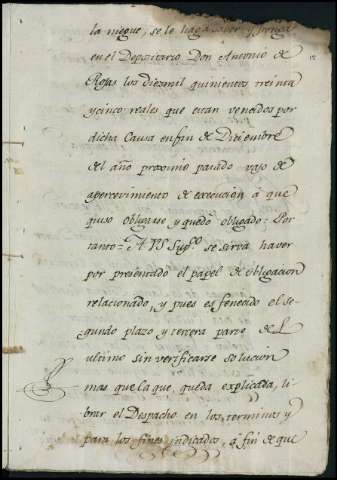 la niegue, se le haga saver y ponga
en el Depositario Don Antonio de
Rojas los diezmil quinientos treinta
y cinco reales que estan vencidos por
dicha Causa en fin de Diciembre
del año proximo pasado vajo de
apercevimiento de execucion á que
quiso obligarse y quedó obligado: Por
tanto = A VS Supp.co se sirva haver
por presentado el papel de obligacion
relacionado, y pues es fenecido el se-
gundo plazo y tercera parte del
ultimo sin verificarse solucion
mas que la que, queda explicada, li-
brar el Despacho en los terminos y
para los fines indicados, a fin de que